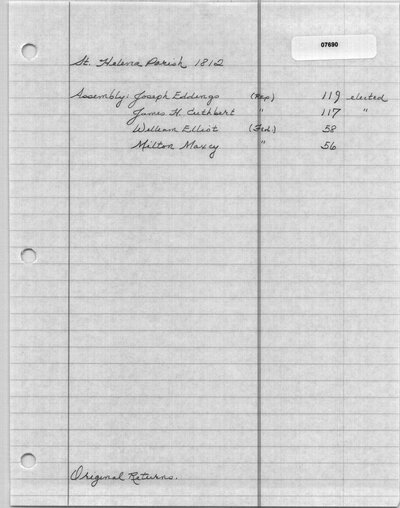 07690
St. Helena Parish 1812
Assembly: Joseph Eddings (Rep.) 119 elected
James H. Cuthbert 117 "
William Elliot (Fed.) 58
Milton Maxcy " 56
Original Returns.